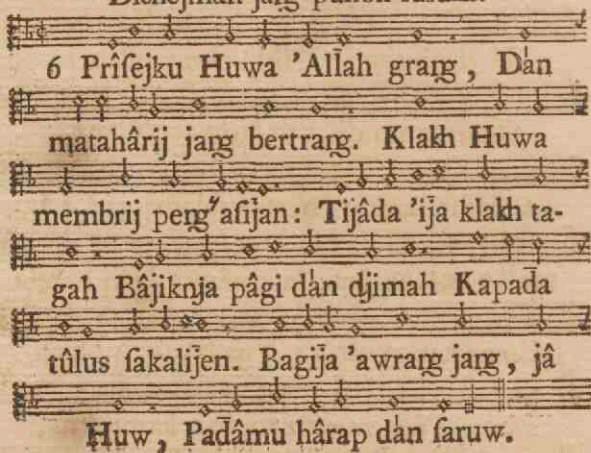 6 Prîſejku Huwa 'Allah grang, Dàn
matahârij jang bertrang. Klakh Huwa
membrij peng"aſijan: Tijâda 'ija klakh ta-
gah Bâjiknja pâgi dàn djimah Kapada
tûlus ſakalijen. Bagija 'awrang jang, jâ
Huw, Padâmu hârap dàn ſaruw.